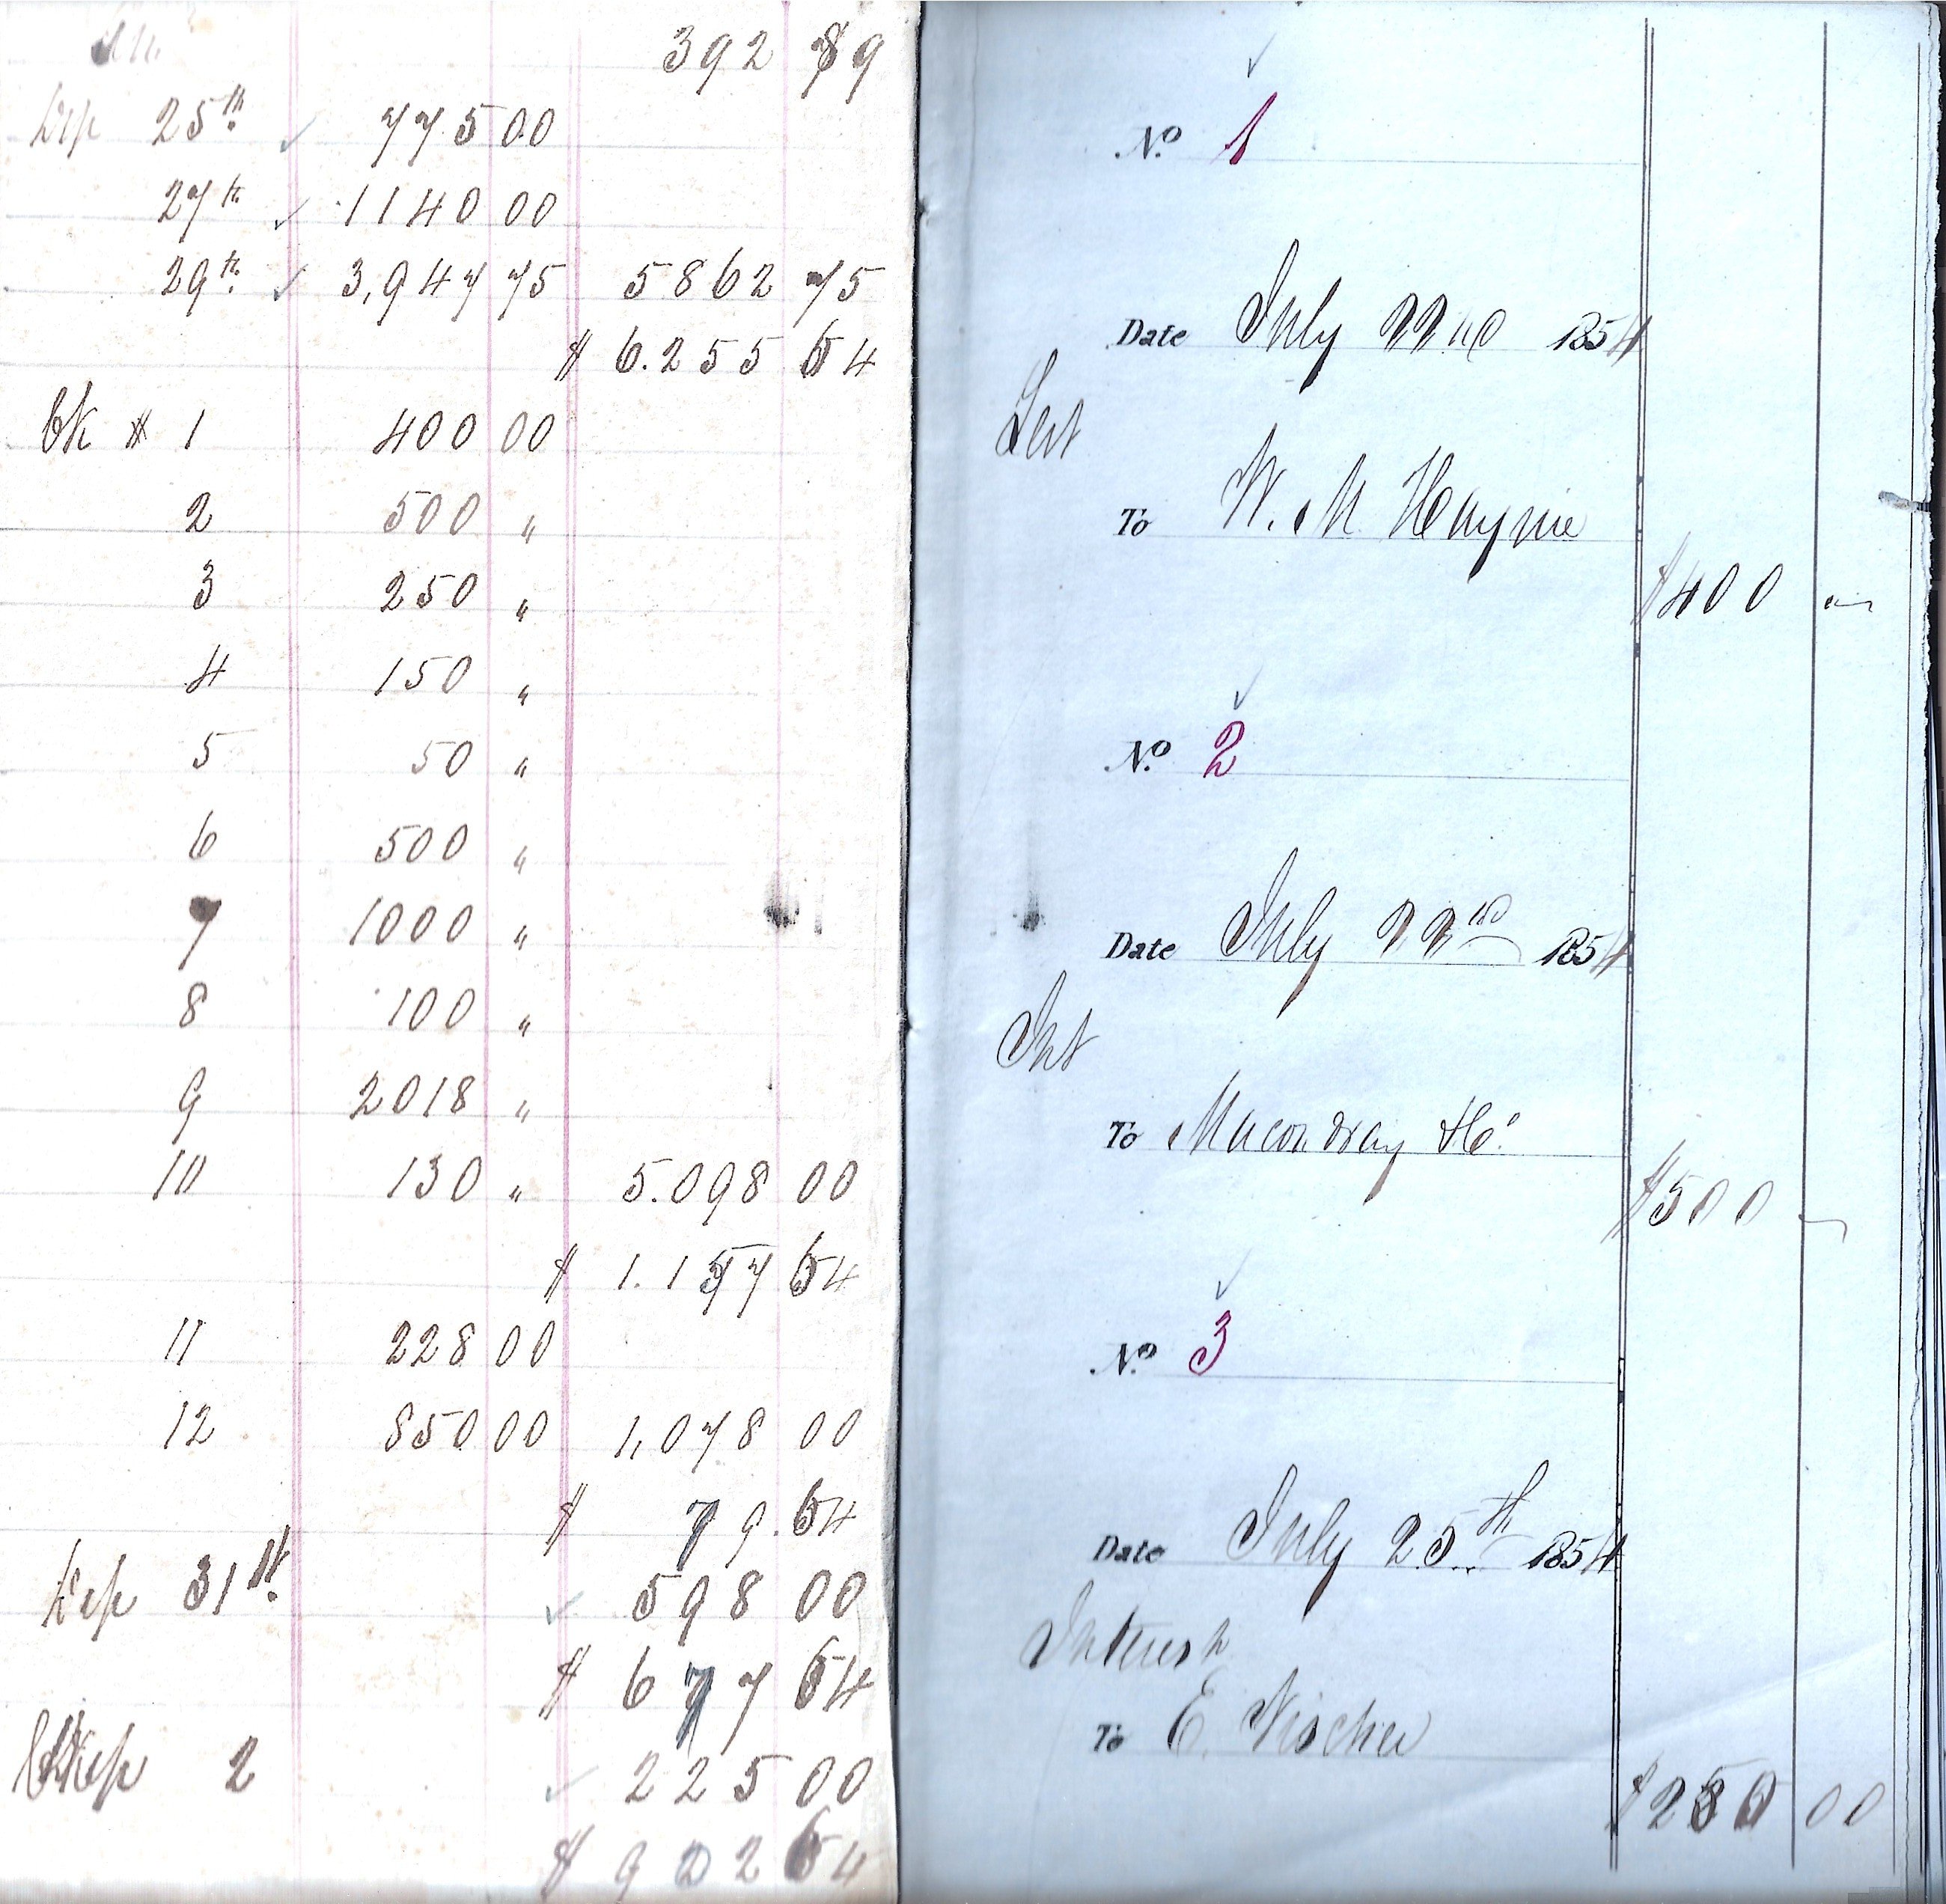 392 89
Dep 25th ✓ 775 00
27th ✓ 1140 00
29th ✓ 3,947 75 5862 75
$ 6.255 64
Ck # 1 400 00
2 500 "
3 250 "
4 150 "
5 50 "
6 500 "
7 1000 "
8 100 "
9 2018 "
10 130 " 5.098 00
$ 1.157 64
11 228 00
12 850 00 1,078 00
$ 79.64
Dep 31st ✓ 598 00
$ 677 64
Dep 2 ✓ 225 00
$ 902 64
✓
No. 1
Date July 22nd 1854
To W. M. Haynie
$400 —
✓
No. 2
Date July 22nd 1854
Int
To Macondray & Co.
$500 —
✓
No. 3
Date July 25th 1854
Interest
To E. Vischer
$250 00